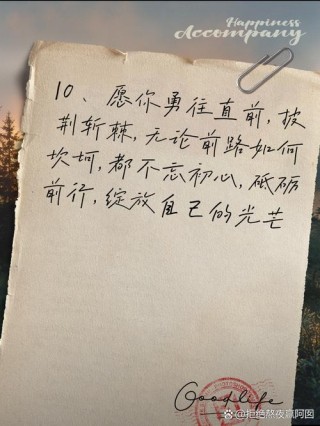 Happiness
Accompany
10、愿你勇往直前,披
荆斩棘,无论前路如何
坎坷,都不忘初心,砥砺
前行,绽放自己的光芒
Good life
@拒绝熬夜赢阿图